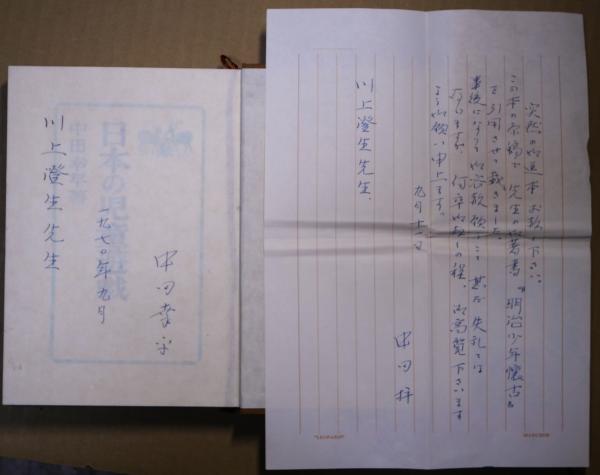 川上澄生先生
一九七〇年九月
中田幸平
日本の児童遊戯
中田幸平著
突然の御送本お赦し下さい。
この本の原稿に先生の御著書『明治少年懐古』
を引用させて戴きました。
事後になって御容赦願うこと甚だ失礼とは
存じますが、何卒御赦しの程、御高覧下さいます
よう御願い申上ます。
九月十一日
中田 拝
川上澄生先生